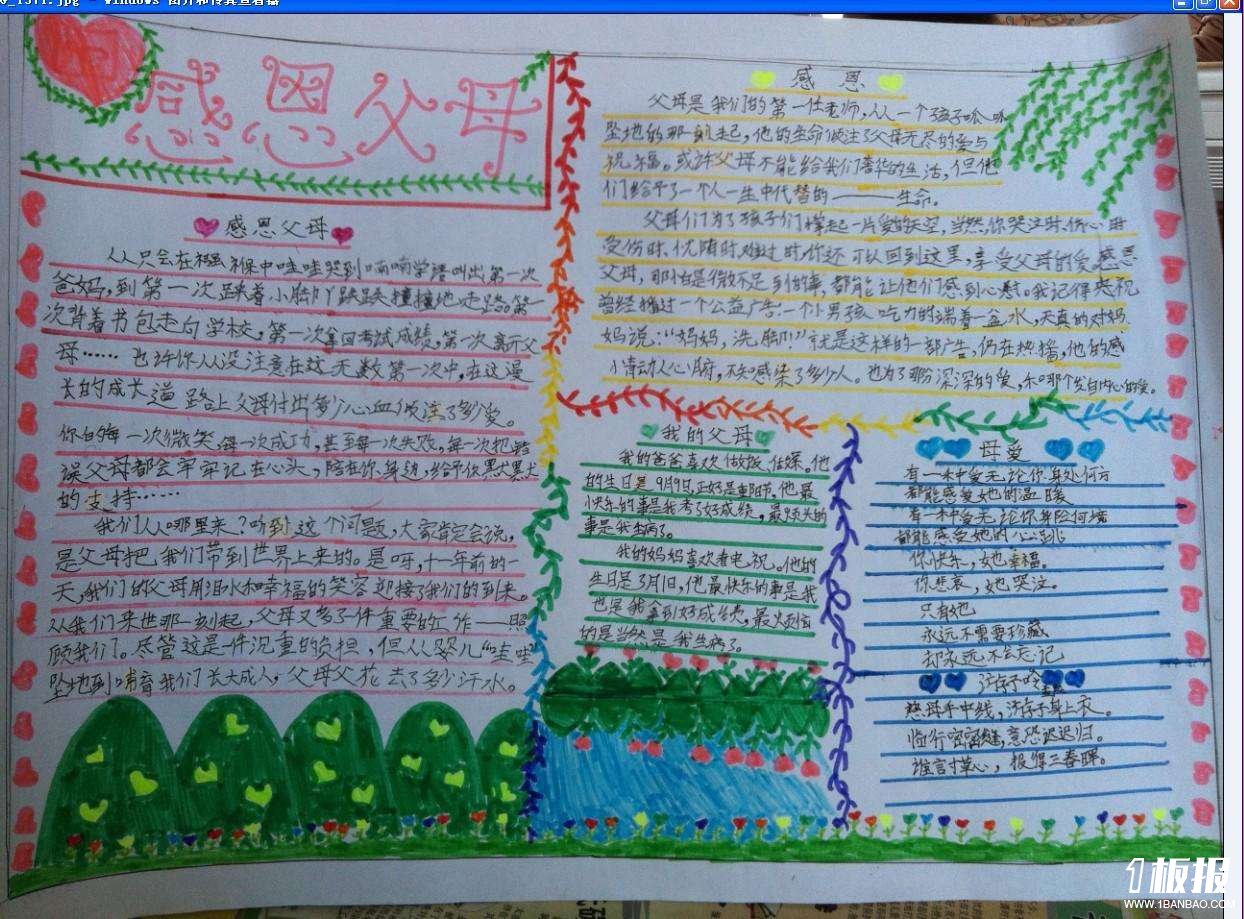 感恩父母
感恩父母
人只会在襁褓中哇哇哭到喃喃学语叫出第一次
爸妈,到第一次踩着小脚丫跌跌撞撞地走路。第一
次背着书包走向学校,第一次拿回考试成绩,第一次离开父
母……也许你从没注意在这无数第一次中,在这漫
长的成长道路上父母付出多少心血倾注了多少爱。
你的每一次微笑,每一次成功,甚至每一次失败,每一次把错
误父母都会牢牢记在心头,陪在你身边,给予你默默
的支持……
我们从哪里来?听到这个问题,大家肯定会说,
是父母把我们带到世界上来的。是呀,十一年前的一
天,我们的父母用泪水和幸福的笑容迎接了我们的到来。
从我们来世那一刻起,父母又多了件重要的工作——照
顾我们。尽管这是件沉重的负担,但从婴儿“哇哇”
坠地到哺育我们长大成人,父母父花去了多少汗水。
感恩
父母是我们的第一任老师,从一个孩子呱呱
坠地的那一刻起,他的生命倾注了父母无尽的爱与
祝福。或许父母不能给我们奢华的生活,但他
们给予了一个人一生中代替的———生命。
父母们为了孩子们撑起一片爱的天空,当然,你哭泣时,伤心时
受伤时,忧随时,难过时,你还可以回到这里,享受父母的爱,感恩
父母,那怕是微不足到的事,都能让他们感到心慰。我记得悲祝
曾经播过一个公益广告:一个小男孩吃力的端着一盆水,天真的对妈
妈说:“妈妈,洗脚!”就是这样的一部广告,仍在热播,他的感
小情动人心府,不知感染了多少人。也为了那份深深的爱,
我的父母
我的爸爸喜欢做饭、他
的生日是9月9日,正好是重阳节。他最
快乐的事是我考了好成绩,最烦头的
事是我生病了。
我的妈妈喜欢看电视。他的
生日是3月1日,他最快乐的事是我
也是我拿到好成绩,最火的
的是当然是我生病了。
母爱
有一种爱无论你身处何方
都能感受她的温暖
有一种爱无论你身险何境
都能感受她的心跳
你快乐,她幸福。
你悲哀,她哭泣。
只有她
永远不需要珍藏
却永远不会忘记
游子吟
慈母手中线,游子身上衣。
临行密密缝,意恐迟迟归。
谁言寸草心,报得三春晖。
1板报
WWW.1BANBAO.COM